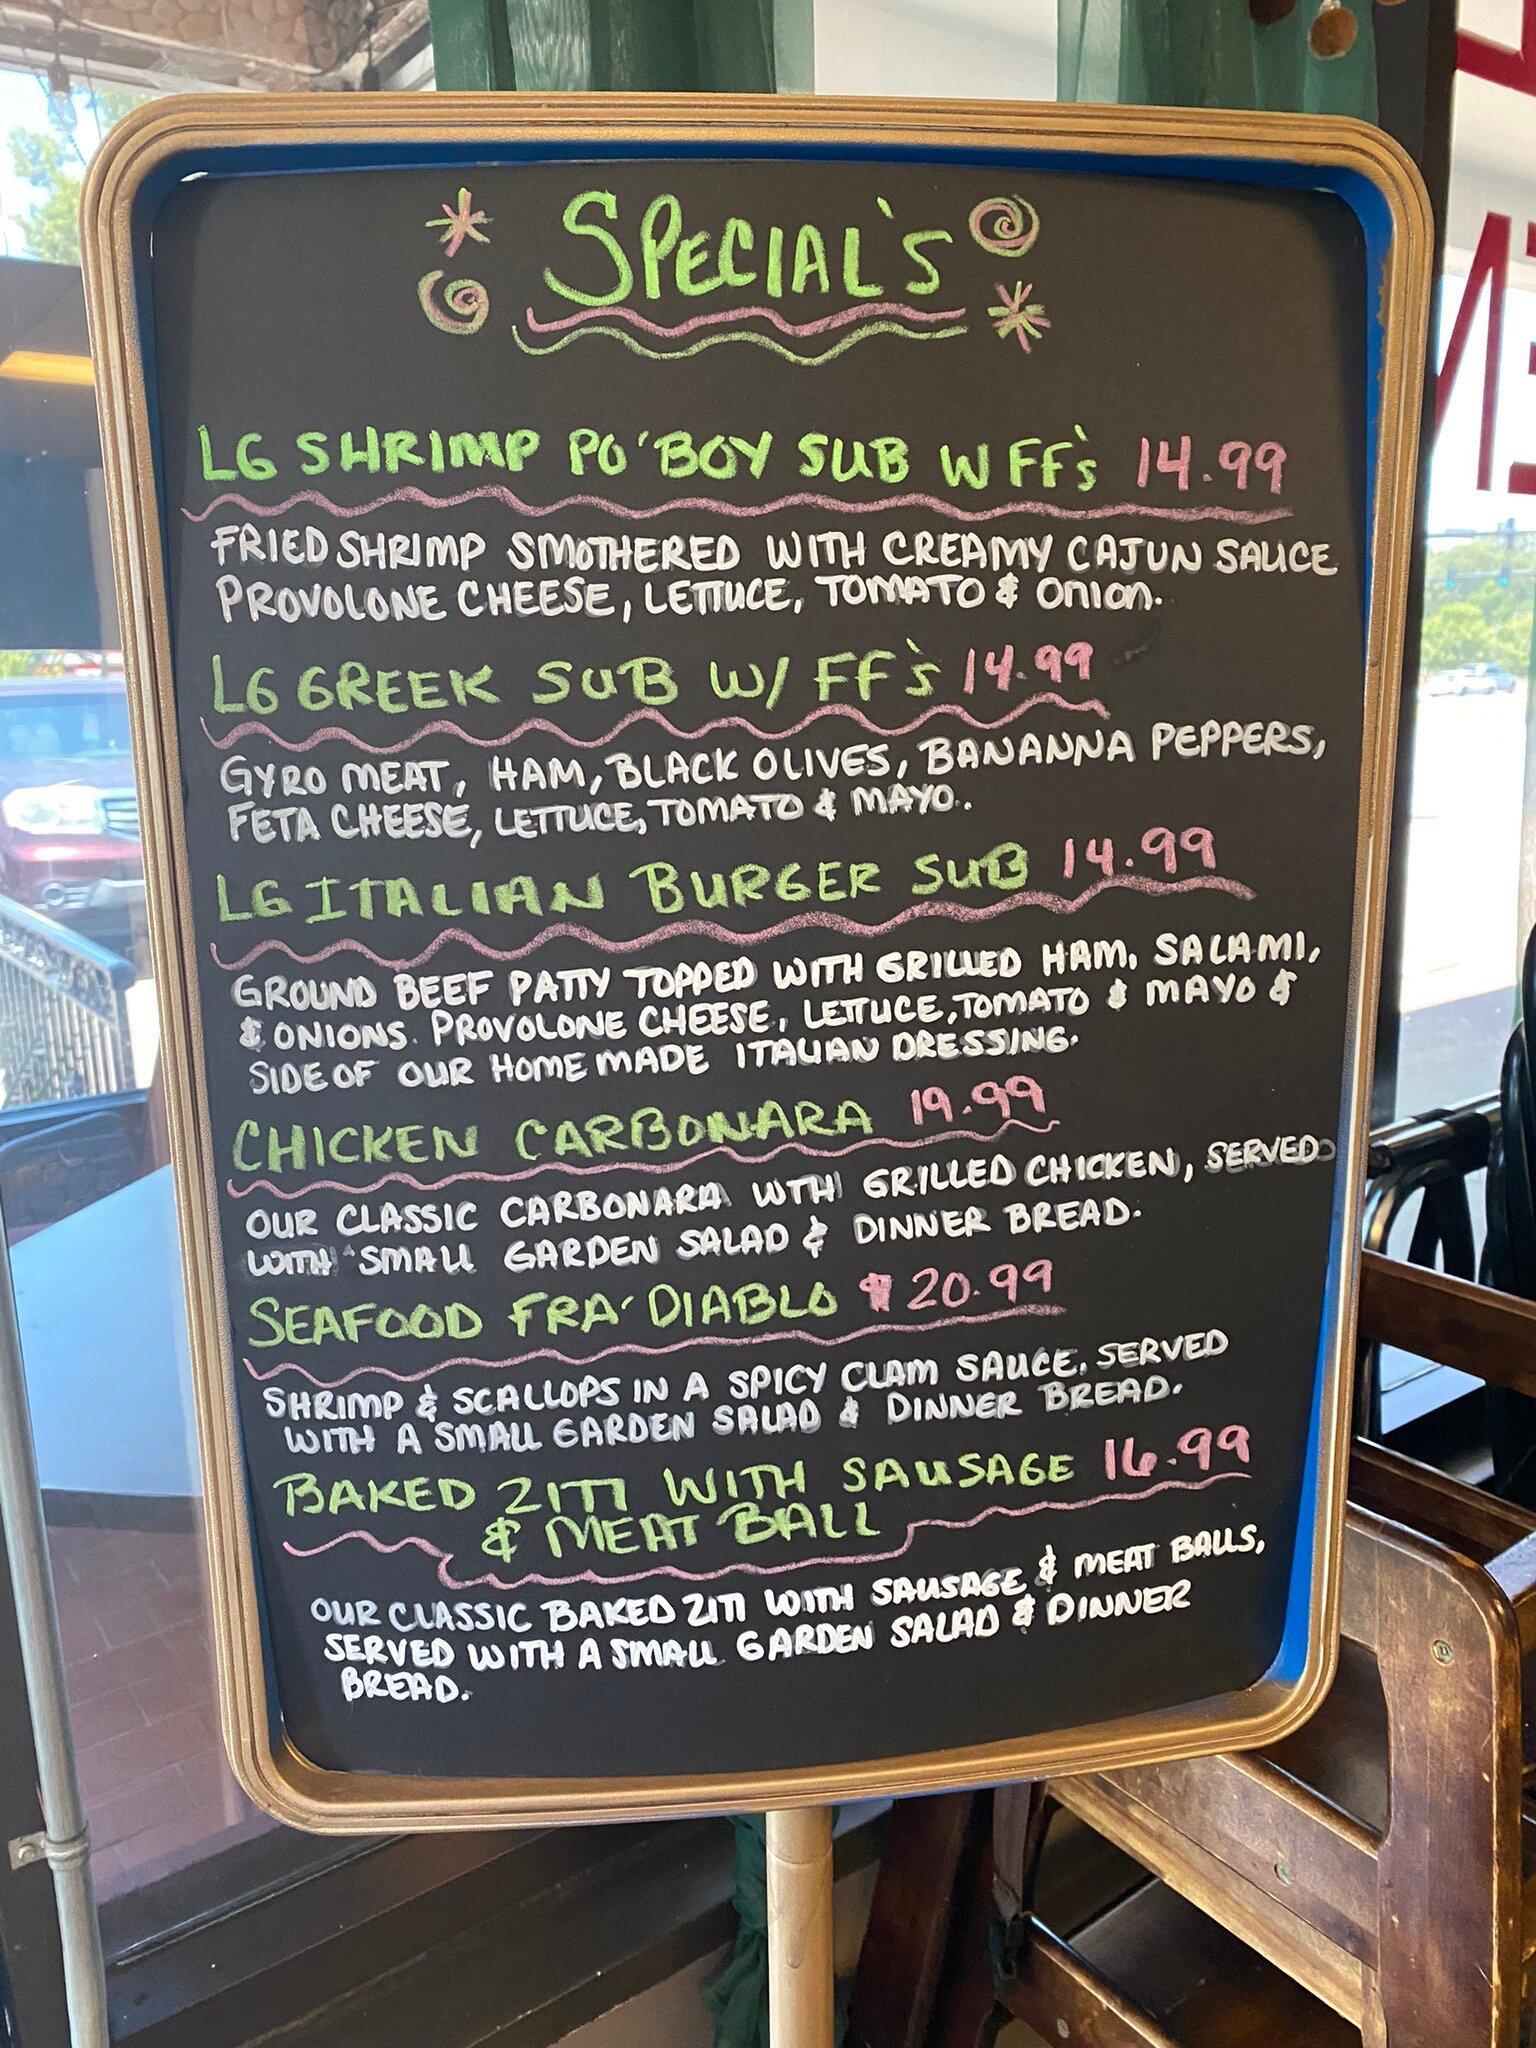 SPECIAL'S
LG SHRIMP PO'BOY SUB W FF's 14.99
FRIED SHRIMP SMOTHERED WITH CREAMY CAJUN SAUCE
PROVOLONE CHEESE, LETTUCE, TOMATO & ONION.
LG GREEK SUB W/ FF's 14.99
GYRO MEAT, HAM, BLACK OLIVES, BANANNA PEPPERS,
FETA CHEESE, LETTUCE, TOMATO & MAYO.
LG ITALIAN BURGER SUB 14.99
GROUND BEEF PATTY TOPPED WITH GRILLED HAM, SALAMI,
& ONIONS. PROVOLONE CHEESE, LETTUCE, TOMATO & MAYO &
SIDE OF OUR HOMEMADE ITALIAN DRESSING.
CHICKEN CARBONARA 19.99
OUR CLASSIC CARBONARA WTH GRILLED CHICKEN, SERVED
WITH SMALL GARDEN SALAD & DINNER BREAD.
SEAFOOD FRA'DIABLO $20.99
SHRIMP & SCALLOPS IN A SPICY CLAM SAUCE, SERVED
WITH A SMALL GARDEN SALAD & DINNER BREAD.
BAKED ZITI WITH SAUSAGE 16.99
& MEAT BALL
OUR CLASSIC BAKED ZITI WITH SAUSAGE & MEAT BALLS,
SERVED WITH A SMALL GARDEN SALAD & DINNER
BREAD.